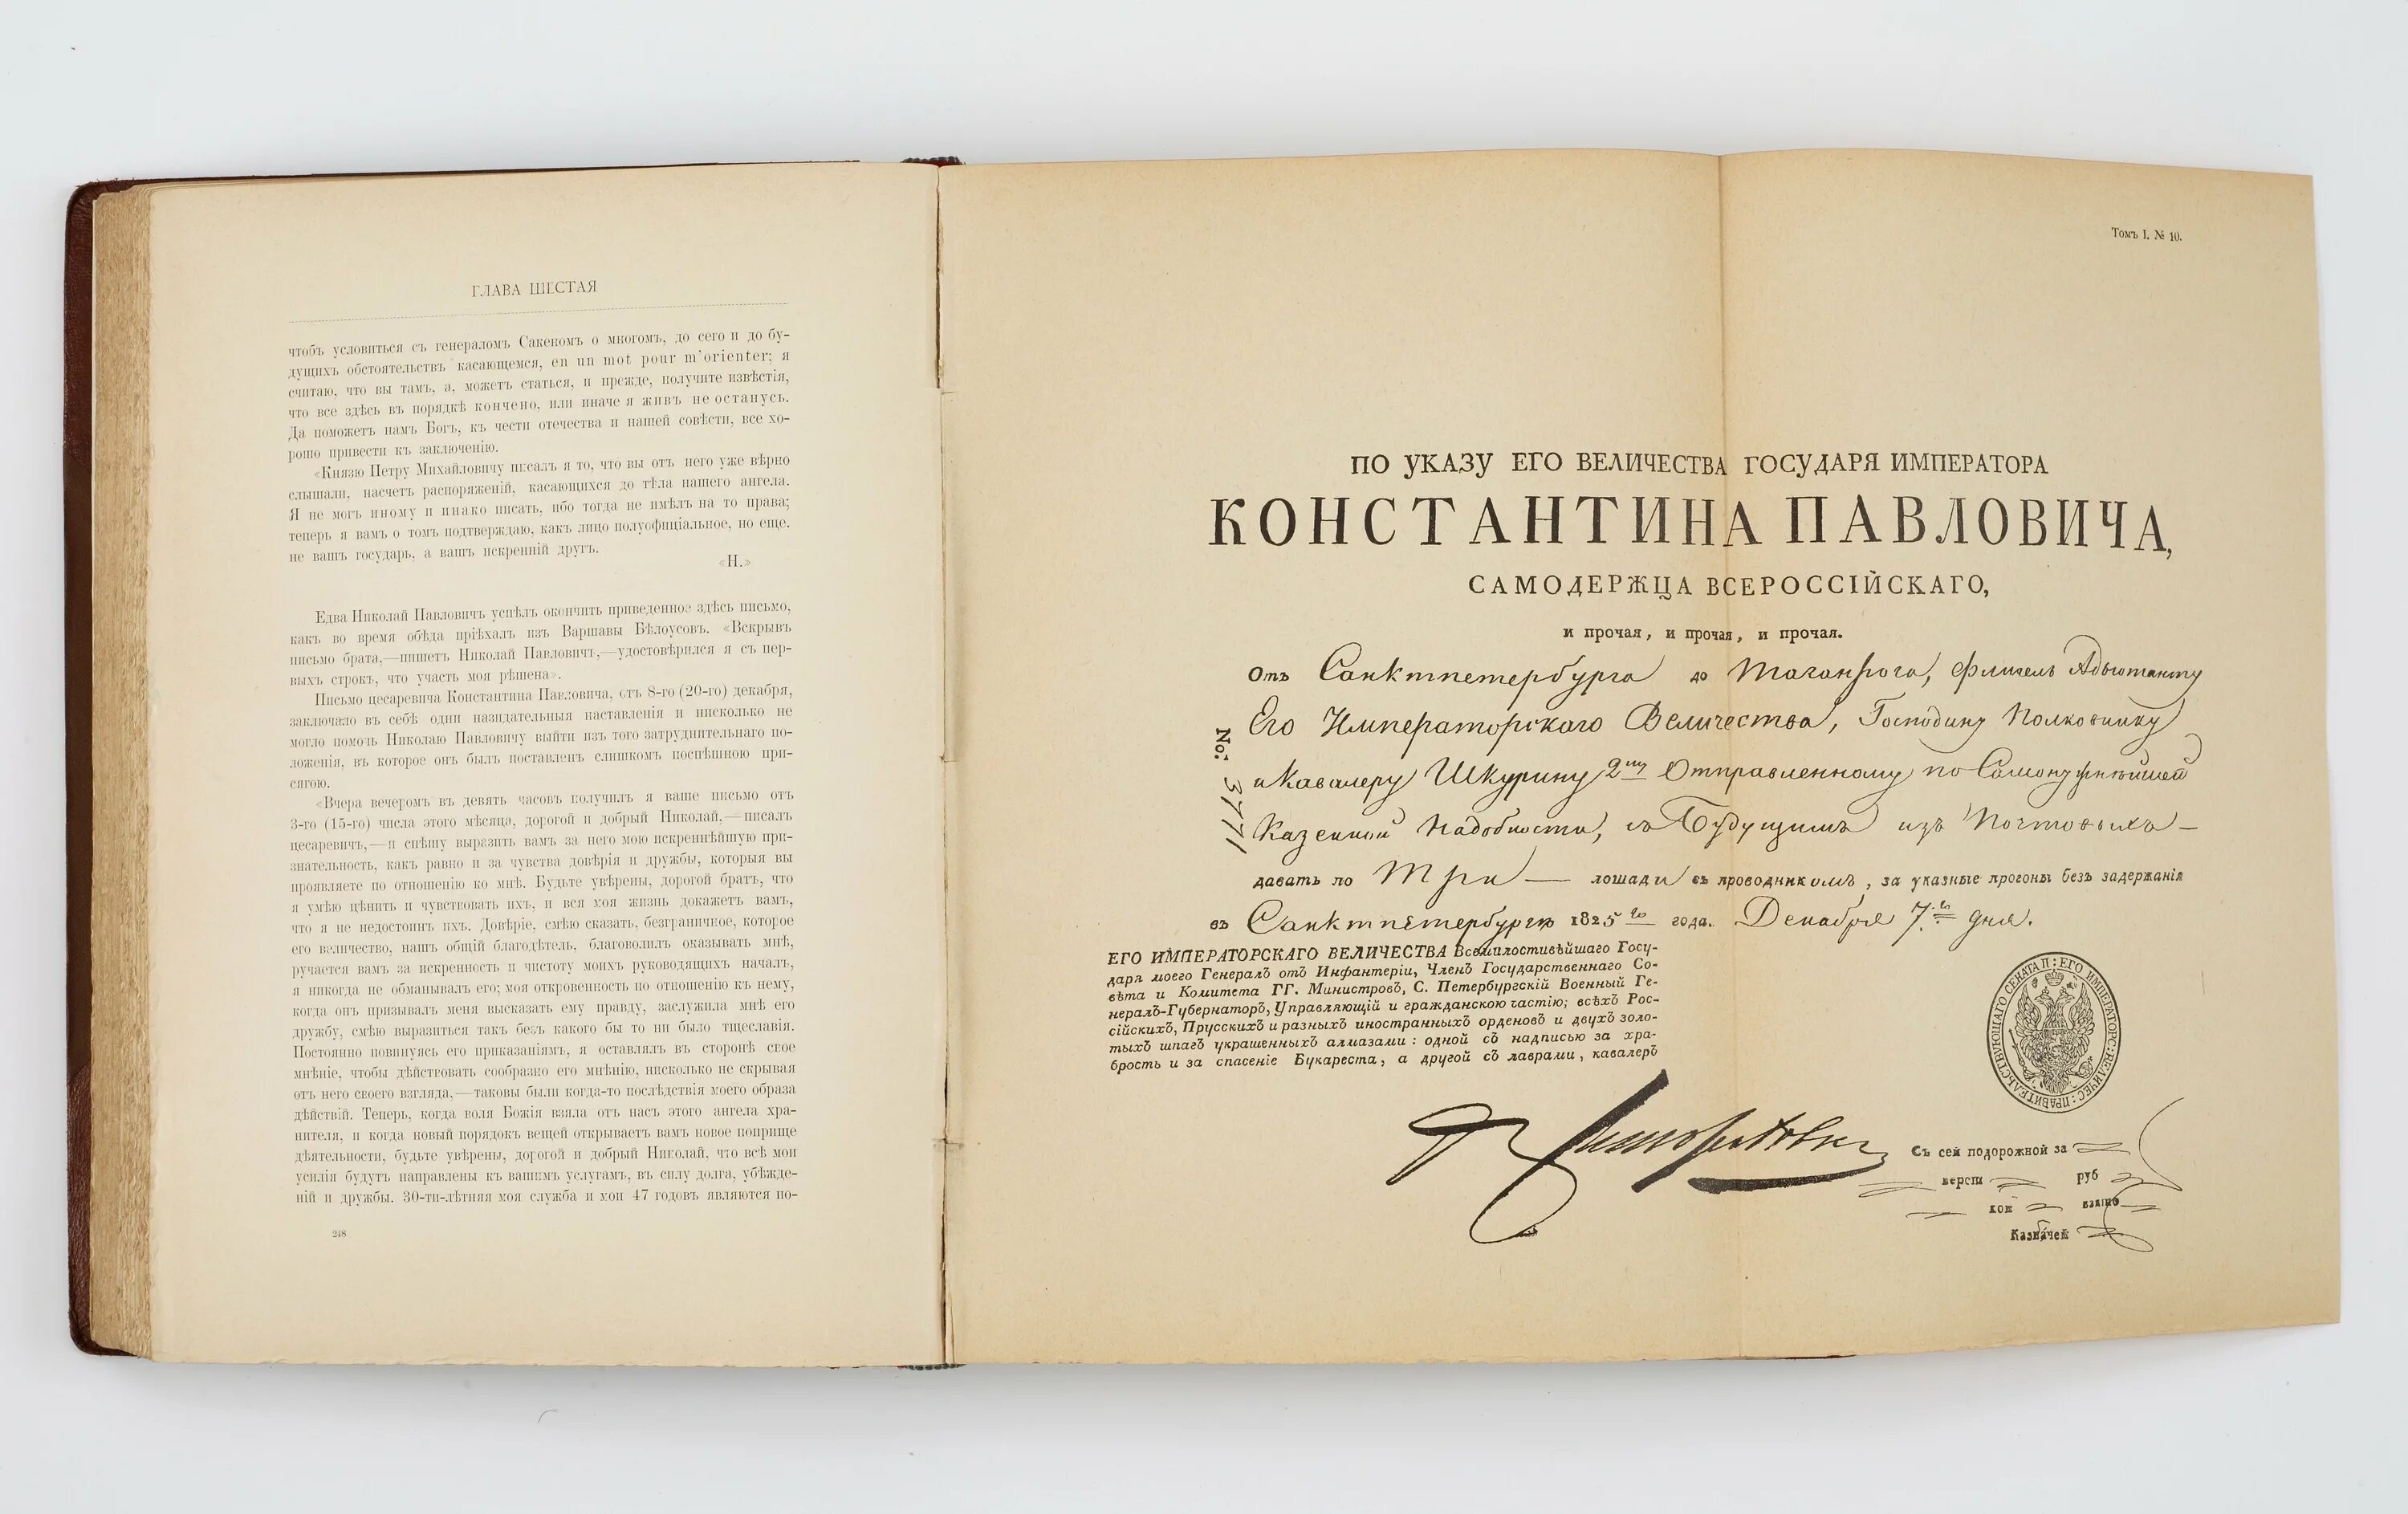 ГЛАВА ШЕСТАЯ
чтобъ условиться съ генераломъ Сакеномъ о многомъ, до сего и до бу-
дущихъ обстоятельствъ касающемся, en un mot pour m'orienter; я
считаю, что вы тамъ, а, можетъ статься, и прежде, получите извѣстія,
что все здѣсь въ порядкѣ кончено, или иначе я живъ не останусь.
Да поможетъ намъ Богъ, къ чести отечества и нашей совѣсти, все хо-
рошо привести къ заключенію.
«Князю Петру Михайловичу писалъ я то, что вы отъ него уже вѣрно
слышали, насчетъ распоряженій, касающихся до тѣла нашего ангела.
Я не могъ иному и инако писать, ибо тогда не имѣлъ на то права;
теперь я вамъ о томъ подтверждаю, какъ лицо полуофиціальное, но еще.
не вашъ государь, а вашъ искренній другъ.
«Н.»
Едва Николай Павловичъ успѣлъ окончить приведенное здѣсь письмо,
какъ во время обѣда пріѣхалъ изъ Варшавы Бѣлоусовъ. «Вскрывъ
письмо брата,—пишетъ Николай Павловичъ,—удостовѣрился я съ пер-
выхъ строкъ, что участь моя рѣшена».
Письмо цесаревича Константина Павловича, отъ 8-го (20-го) декабря,
заключало въ себѣ одни назидательныя наставленія и нисколько не
могло помочь Николаю Павловичу выйти изъ того затруднительнаго по-
ложенія, въ которое онъ былъ поставленъ слишкомъ поспѣшною при-
сягою.
«Вчера вечеромъ въ девять часовъ получилъ я ваше письмо отъ
3-го (15-го) числа этого мѣсяца, дорогой и добрый Николай,—писалъ
цесаревичъ,—и спѣшу выразить вамъ за него мою искреннѣйшую при-
знательность, какъ равно и за чувства довѣрія и дружбы, которыя вы
проявляете по отношенію ко мнѣ. Будьте увѣрены, дорогой братъ, что
я умѣю цѣнить и чувствовать ихъ, и вся моя жизнь докажетъ вамъ,
что я не недостоинъ ихъ. Довѣріе, смѣю сказать, безграничное, которое
его величество, нашъ общій благодѣтель, благоволилъ оказывать мнѣ,
ручается вамъ за искренность и чистоту моихъ руководящихъ началъ,
я никогда не обманывалъ его; моя откровенность по отношенію къ нему,
когда онъ призывалъ меня высказать ему правду, заслужила мнѣ его
дружбу, смѣю выразиться такъ безъ какого бы то ни было тщеславія.
Постоянно повинуясь его приказаніямъ, я оставлялъ въ сторонѣ свое
мнѣніе, чтобы дѣйствовать сообразно его мнѣнію, нисколько не скрывая
отъ него своего взгляда,—таковы были когда-то послѣдствія моего образа
дѣйствій. Теперь, когда воля Божія взяла отъ насъ этого ангела хра-
нителя, и когда новый порядокъ вещей открываетъ вамъ новое поприще
дѣятельности, будьте увѣрены, дорогой и добрый Николай, что всѣ мои
усилія будутъ направлены къ вашимъ услугамъ, въ силу долга, убѣжде-
ній и дружбы. 30-ти-лѣтняя моя служба и мои 47 годовъ являются по-
248
Томъ I. № 10.
ПО УКАЗУ ЕГО ВЕЛИЧЕСТВА ГОСУДАРЯ ИМПЕРАТОРА
КОНСТАНТИНА ПАВЛОВИЧА,
САМОДЕРЖЦА ВСЕРОССІЙСКАГО,
и прочая, и прочая, и прочая.
Отъ Санктпетербурга до Таганрога, Флигель Адъютанту
Его Императорскаго Величества, Господину Полковнику
и Кавалеру Шкурину 2му Отправленному по Самонужнѣйшей
Казенной Надобности, съ Будущимъ изъ Почтовыхъ —
No: 3771
давать по Три — лошади съ проводникомъ, за указные прогоны безъ задержанія
въ Санктпетербургѣ 1825го года. Декабря 7.го дня.
ЕГО ИМПЕРАТОРСКАГО ВЕЛИЧЕСТВА Всемилостивѣйшаго Госу-
даря моего Генералъ отъ Инфантеріи, Членъ Государственнаго Со-
вѣта и Комитета ГГ. Министровъ, С. Петербургскій Военный Ге-
нералъ-Губернаторъ, Управляющій и гражданскою частію; всѣхъ Рос-
сійскихъ, Прусскихъ и разныхъ иностранныхъ орденовъ и двухъ золо-
тыхъ шпагъ украшенныхъ алмазами: одной съ надписью за хра-
брость и за спасеніе Букареста, а другой съ лаврами, кавалеръ
Съ сей подорожной за
верстъ руб
коп взято
Казначей